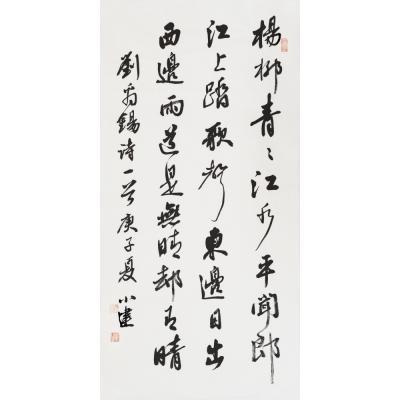 楊柳青〻江水平聞郎
江上踏歌聲東邊日出
西邊雨道是無晴却有晴
劉禹錫诗一首庚子夏小建